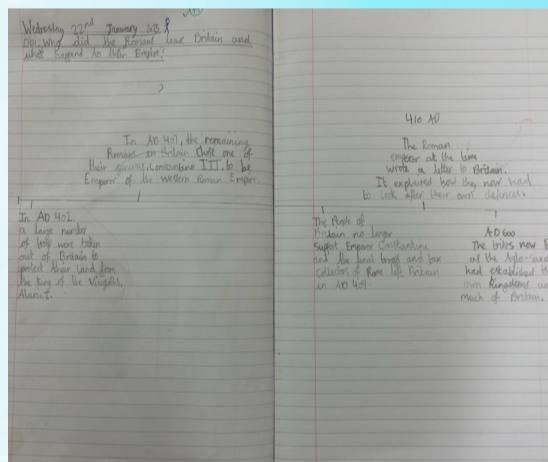 Wednesday 22nd January
Obj: Why did the Romans leave Britain and
what happend to their Empire?
In AD 407, the remaining
Romans in Britain chose one of
their generals, Constantine III, to be
Emperor of the Western Roman Empire.
In AD 402,
a large number
of troops were taken
out of Britain to
protect their land from
the King of the Visigoths,
410 AD
The Roman
emperor at the time
wrote a letter to Britain.
It explained how they now had
to look after their own defences.
The People of
Britain no longer
Support Emperor Constantine
and the final troops and tax
collectors of Rome left Britain
in AD 409.
AD 600
The tribes now
as the
had established
own Kingdoms
much of Britain.